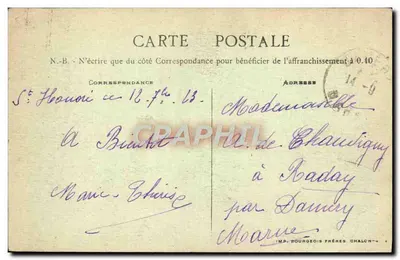 CARTE POSTALE
N.-B. - N'écrire que du côté Correspondance pour bénéficier de l'affranchissement à 0.10
CORRESPONDANCE
ADRESSE
St Honoré ce 12. 7bre. 13.
A Bientôt
Marie-Thérèse
Mademoiselle
A. de Chauvigny
à
par
Marne
CPARAMA
IMP. BOURGEOIS FRÈRES, CHALON
14 -9